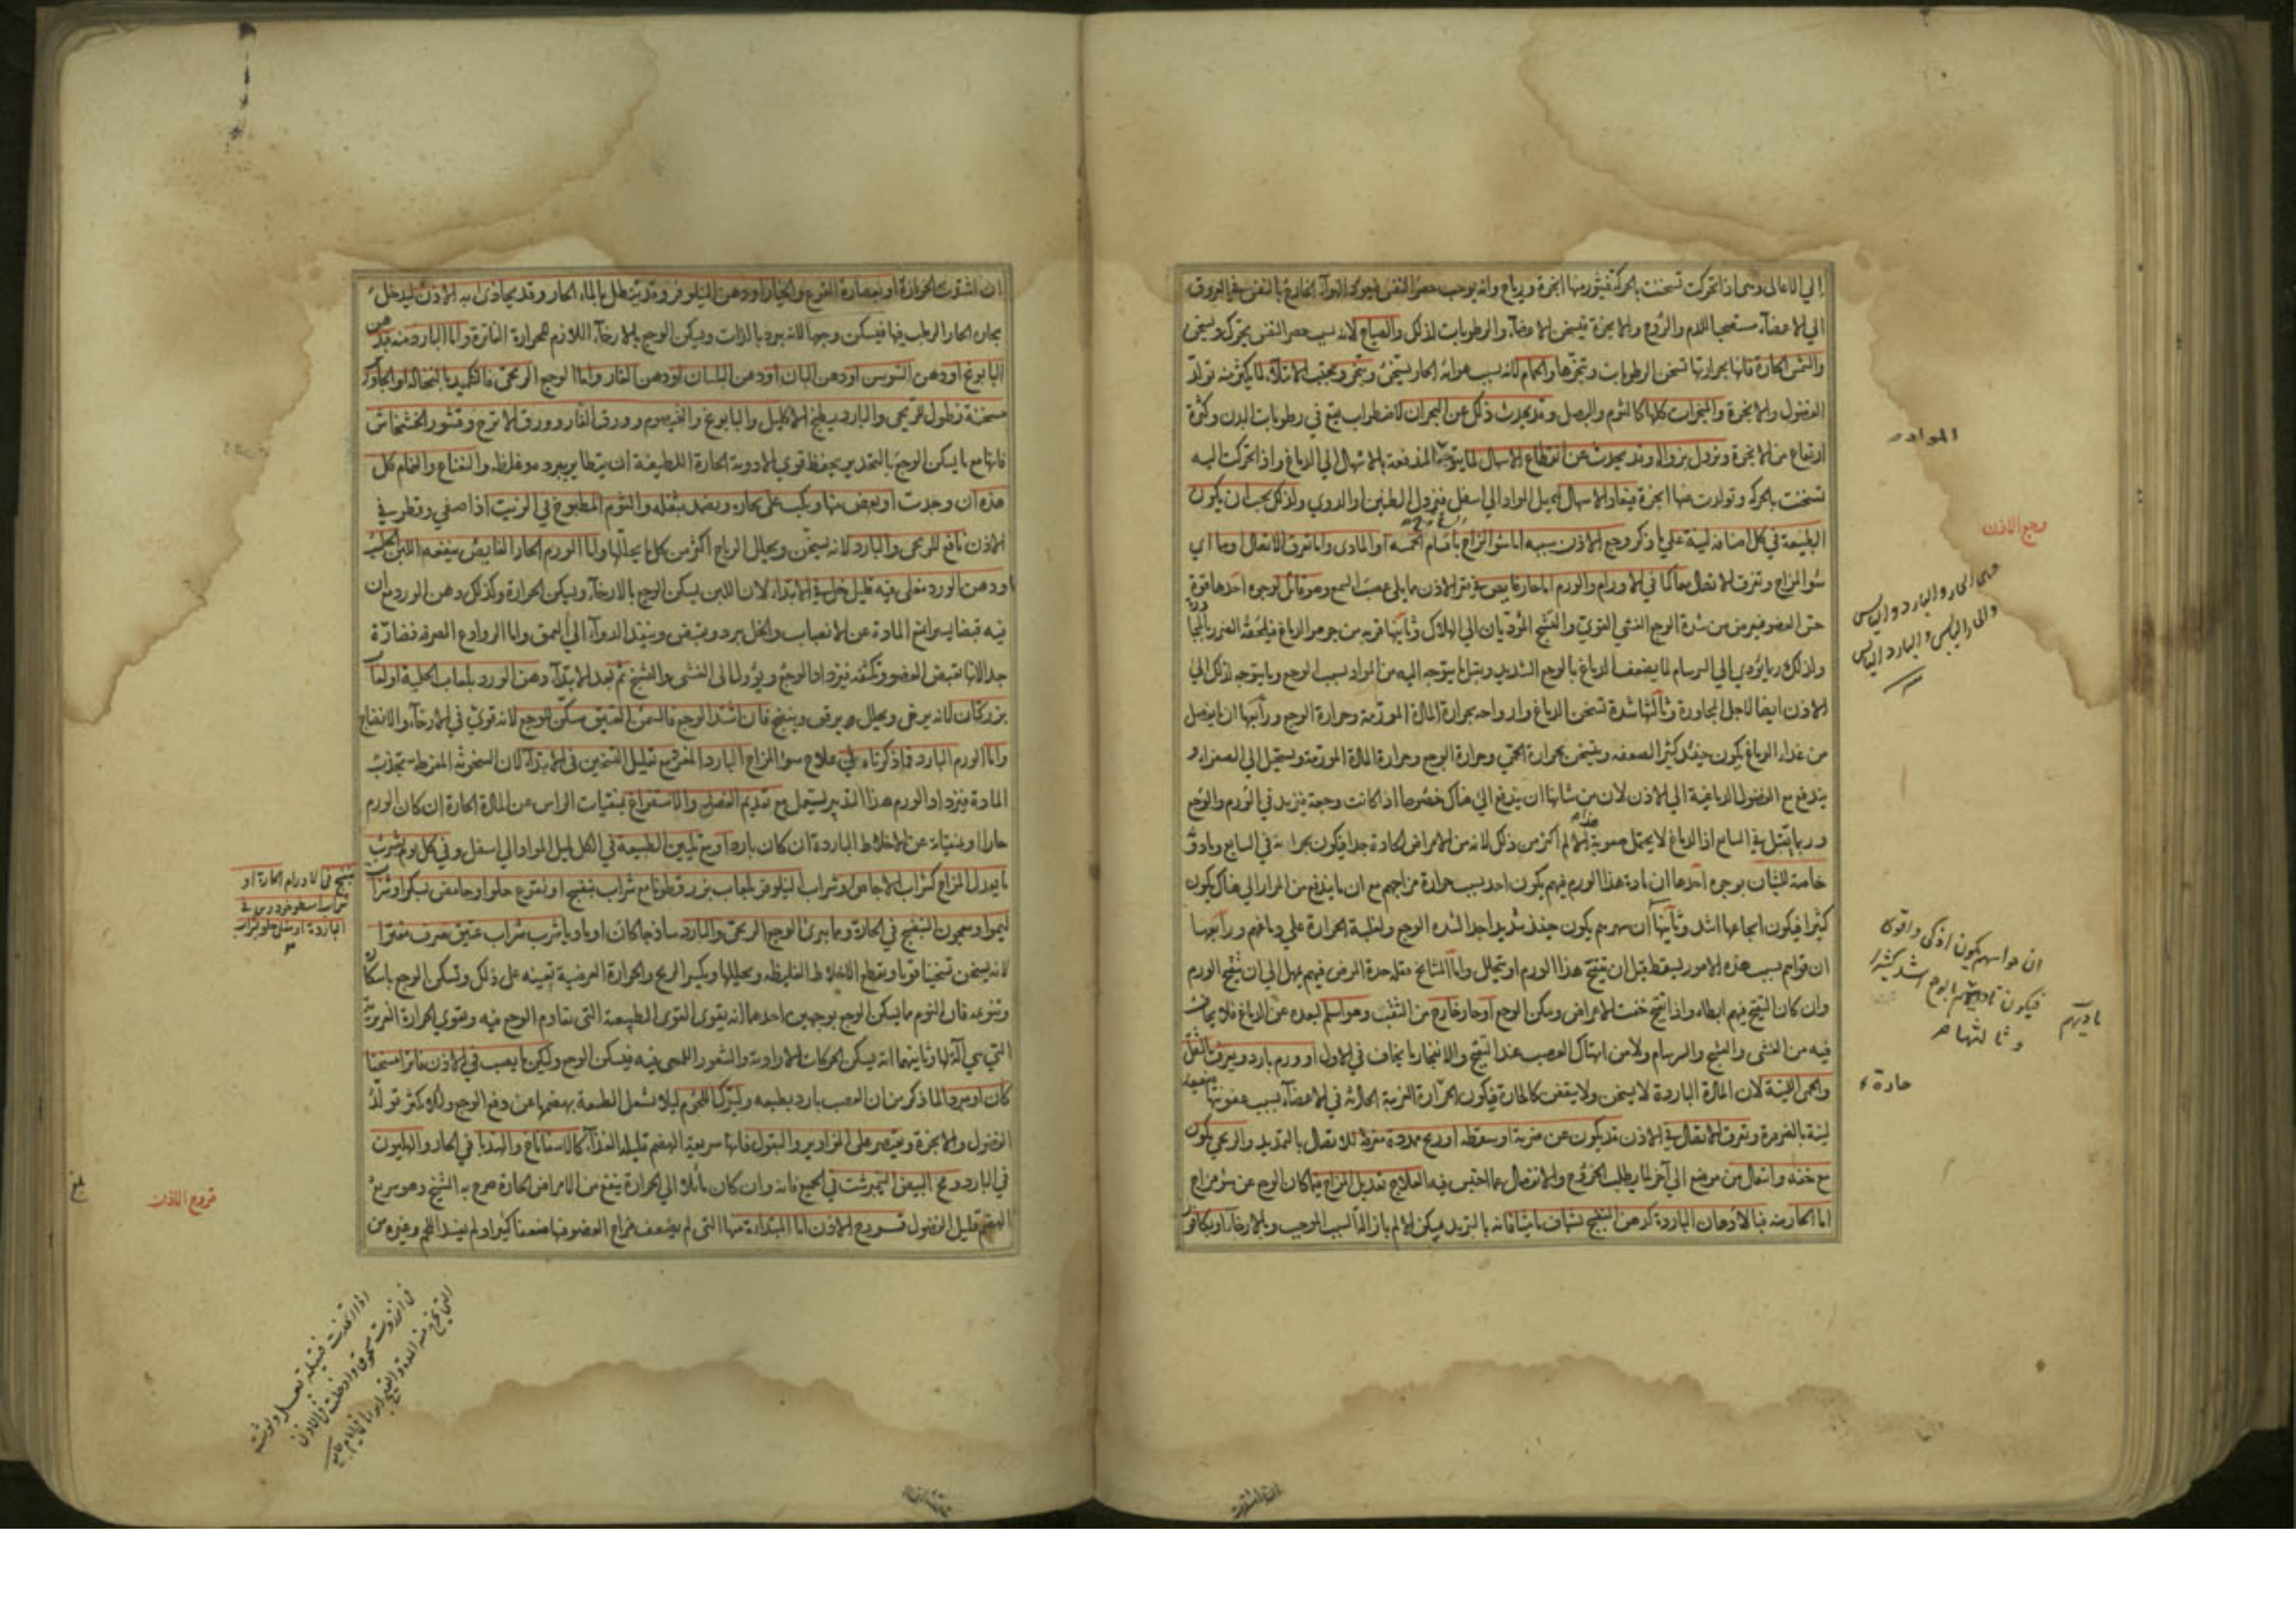 إلى الاعالى وهى اذا تحركت تسخنت بالحركة فيثور منها ابخرة ورياح ولانه يوجب حصر النفس فيحرك الهواء الخارج بالنفس فى العروق
الى الاعضاء مستصحبا للدم والروح والابخرة فيسخن الاعضاء والرطوبات لذلك والصياح لانه بسبب حصر النفس يحرك ويسخن
والشمس الحارة فانها بحرارتها تسخن الرطوبات وتبخرها والحمام لانه بسبب هوائه الحار يسخن ويبخر ويجتنب الامتلاء لما يكثر منه تولد
الفضول والابخرة والمبخرات كلها كالثوم والبصل وقد يحدث ذلك عن البحران لاضطراب يقع في رطوبات البدن وكثرة
ارتفاع من الابخرة ويزول بزواله وقد يحدث عن انقطاع الاسهال لما يتوجه المندفعة بالاسهال الي الدماغ واذا تحركت اليه
المواد
تسخنت بالحركة وتولدت منها ابخرة فيعاد الاسهال ليميل المواد الي اسفل فيزول الطنين او الدوي ولذلك يجب ان يكون
الطبيعة في كل اصنافه لينة علي ما ذكر وجع الاذن سببه اما سوء المزاج باقسامه الخمسة او المادى واما تفرق الاتصال او هما اي
وجع الاذن
سوء المزاج وتفرق الاتصال معا كما في الاورام والورم اما حار غايص في قعر الاذن مما يلي عصب السمع وهو قاتل لوجوه احدها قوة
اعنى الحار والبارد واليابس
والحار اليابس والبارد اليابس
حس العضو فيعرض من شدة الوجع الغشى القوي والتشنج المؤديان الي الهلاك وثانيها قربه من جوهر الدماغ فيلحقه الضرر بالمجاورة
ولذلك ربما يؤدي الي السرسام لما يضعف الدماغ بالوجع الشديد ويقبل ما يتوجه اليه من المواد بسبب الوجع وما يتوجه لذلك الي
الاذن ايضا لاجل المجاورة وثالثها شدة تسخن الدماغ وارواحه بحرارة المادة المورمة وحرارة الوجع ورابعها ان ما يفضل
من غذاء الدماغ يكون حينئذ كثيرا لضعفه ويتسخن بحرارة الحمى وحرارة الوجع وحرارة المادة المورمة ويستحيل الي الصفراء و
يندفع مع الفضول الدماغية الي الاذن لان من شانها ان يندفع الي هناك خصوصا اذا كانت وجعة فيزيد في الورم والوجع
وربما يقتل في السابع اذ الدماغ لا يحتمل صعوبة هذا الالم اكثر من ذلك لانه من الامراض الحادة جدا فيكون بحرانه في السابع وما دونه
خاصة للشبان لوجوه احدها ان مادة هذا الورم فيهم يكون احد بسبب حرارة مزاجهم مع ان ما يندفع من المرار الي هناك يكون
كثيرا فيكون ايجاعها اشد وثانيها ان سهرهم يكون حينئذ شديدا جدا لشدة الوجع ولغلبة الحرارة علي دماغهم ورابعها
ان حواسهم يكون اذكى واقوى
فيكون تاديهم بالوجع اشد كثيرا
وثالثها
ان قواهم بسبب هذه الامور يسقط قبل ان ينتج هذا الورم او يتحلل واما المشايخ فلقلة حدة المرض فيهم يمهل الي ان ينضج الورم
وان كان النضج فيهم ابطاء واذا نضج خفت الاعراض وسكن الوجع او حار خارج من الثقب وهو اسلم لبعده عن الدماغ فلا يخاف
فيه من الغشى والتشنج والسرسام ولا من انهتاك العصب عند النضج والانفجار ما يخاف في الاول او ورم بارد ويعرف بالثقل
والحمى اللينة لان المادة الباردة لا يسخن ولا يتعفن كالحارة فيكون الحرارة الغريبة الحادثة في الاعضاء بسبب عفونتها ضعيفة
حادة
لينة بالضرورة وتفرق الاتصال في الاذن قد يكون عن ضربة او سقطة او ريح ممددة مفرقة للاتصال بالتمديد والريحى يكون
مع خفة وانتقال من موضع الي آخر لما يطلب الخروج والانفصال عما احتبس فيه العلاج تعديل المزاج فيما كان الوجع عن سوء مزاج
اما الحار منه فبالادهان الباردة كدهن البنفسج

ان اشتدت الحرارة او بعصارة القرع والخيار او دهن النيلوفر وقد ينطل بالماء الحار وقد يحاذى به الاذن ليدخل
بخاره الحار الرطب فيها فيسكن وجعها لانه يبرد بالذات ويسكن الوجع بالارخاء اللازم للحرارة الفاترة واما البارد منه فبدهن
البابونج او دهن السوسن او دهن البان او دهن البلسان او دهن الغار واما الوجع الريحى فالتكميد بالنخالة او الجاورس
مسخنة ونطول للريحى والبارد بطبخ الاكليل والبابونج والقيصوم وورق الغار وورق الاترج وقشور الخشخاش
فانها مع ما يسكن الوجع بالتخدير يحفظ قوي الادوية الحارة اللطيفة ان يتطاير ببرده وغلظه والنعناع والنمام كل
هذه ان وجدت او بعض منها وينكب على بخاره ويضمد بثفله والثوم المطبوخ في الزيت اذا صفي وقطر في
الاذن نافع للريحى والبارد لانه يسخن ويحلل الرياح اكثر من كل ما يحللها واما الورم الحار الغايص فينفعه اللبن الحليب
او دهن الورد مغلى فيه قليل خل في الابتداء لان اللبن يسكن الوجع بالارخاء ويسكن الحرارة وكذلك دهن الورد مع ان
فيه قبضا يسيرا يمنع المادة عن الانصباب والخل يبرد ويقبض وينفذ الدواء الي العمق واما الروادع الصرفة فضارة
جدا لانها تقبض العضو وتكثفه فيزداد الوجع ويؤول الى الغشى والتشنج ثم بعد الابتداء دهن الورد بلعاب الحلبة او لعاب
بزر كتان لانه يرخى ويحلل ويرقق وينضج فان اشتد الوجع فالسمن العتيق مسكن للوجع لانه قوي في الارخاء والانضاج
واما الورم البارد فما ذكرناه في علاج سوء المزاج البارد المفرد مع تقليل التسخين فى الابتداء لان السخونة المفرطة تجذب
المادة فيزداد الورم هذا التدبير يستعمل مع تقديم الفصد والاستفراغ بمنقيات الراس عن المادة الحارة ان كان الورم
حارا او بمنقياته عن الاخلاط الباردة ان كان باردا ومع تليين الطبيعة في الكل لميل المواد الي اسفل وفي كل يوم شرب
ما يعدل المزاج كشراب الاجاص او شراب النيلوفر بلعاب بزر قطونا مع شراب بنفسج او نقوع حلو او حامض بسكر او شراب
بنفسج فى الاورام الحارة او
شراب اسطوخودوس فى
الباردة او مغلى حلو بشراب
ليموا ومعجون البنفسج في الحارة ومما يبرئ الوجع الريحى والبارد ساذجا كان او ماديا شرب شراب عتيق صرف مفترا
لانه يسخن تسخينا قويا ويقطع الاخلاط الغليظة ويحللها ويكسر الريح والحرارة العرضية تعينه على ذلك وتسكن الوجع باسكاره
وتنويمه فان النوم مما يسكن الوجع بوجهين احدهما انه يقوى القوى الطبيعية التى تقاوم الوجع فيه ويقوي الحرارة الغريزية
التي هي آلتها وثانيهما انه يسكن الحركات الارادية والشعور اللمسى فيه فيسكن الوجع وليكن ما يصب في الاذن فاترا مسخنا
كان او مبردا لما ذكر من ان العصب بارد بطبعه وليترك اللحوم كيلا تشغل الطبيعة بهضمها عن دفع الوجع ولئلا يكثر تولد
الفضول والابخرة ويقتصر على المزاوير والبقول فانها سريعة الهضم قليلة الغذاء كالاسفاناخ والهندبا في الحار والهليون
في البارد ومح البيض النيمبرشت في الجميع فانه وان كان مائلا الي الحرارة ينفع من الامراض الحارة صرح به الشيخ وهو سريع
الهضم قليل الفضول قروح الاذن اما المبتداءة منها التى لم يضعف مزاج العضو فيها ضعفا كثيرا ولم يفسد اللحم وغيره من
قروح الاذن
بلغ
اذا اتخذت فتيلة بعسل ولوثت
فى انزروت مسحوق وادخلت فى الاذن